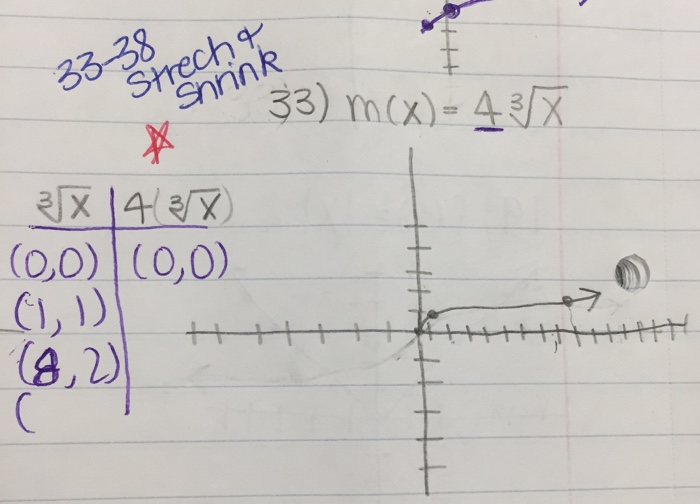 33-38
Strech &
Shrink
33) m(x) = 4 ∛x
∛x | 4(∛x)
(0,0) | (0,0)
(1, 1)
(8, 2)
(